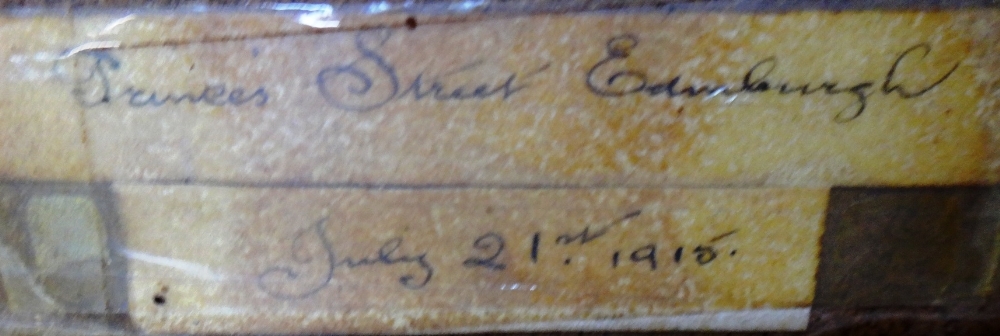 Prince's Street Edinburgh
July 21st. 1915.